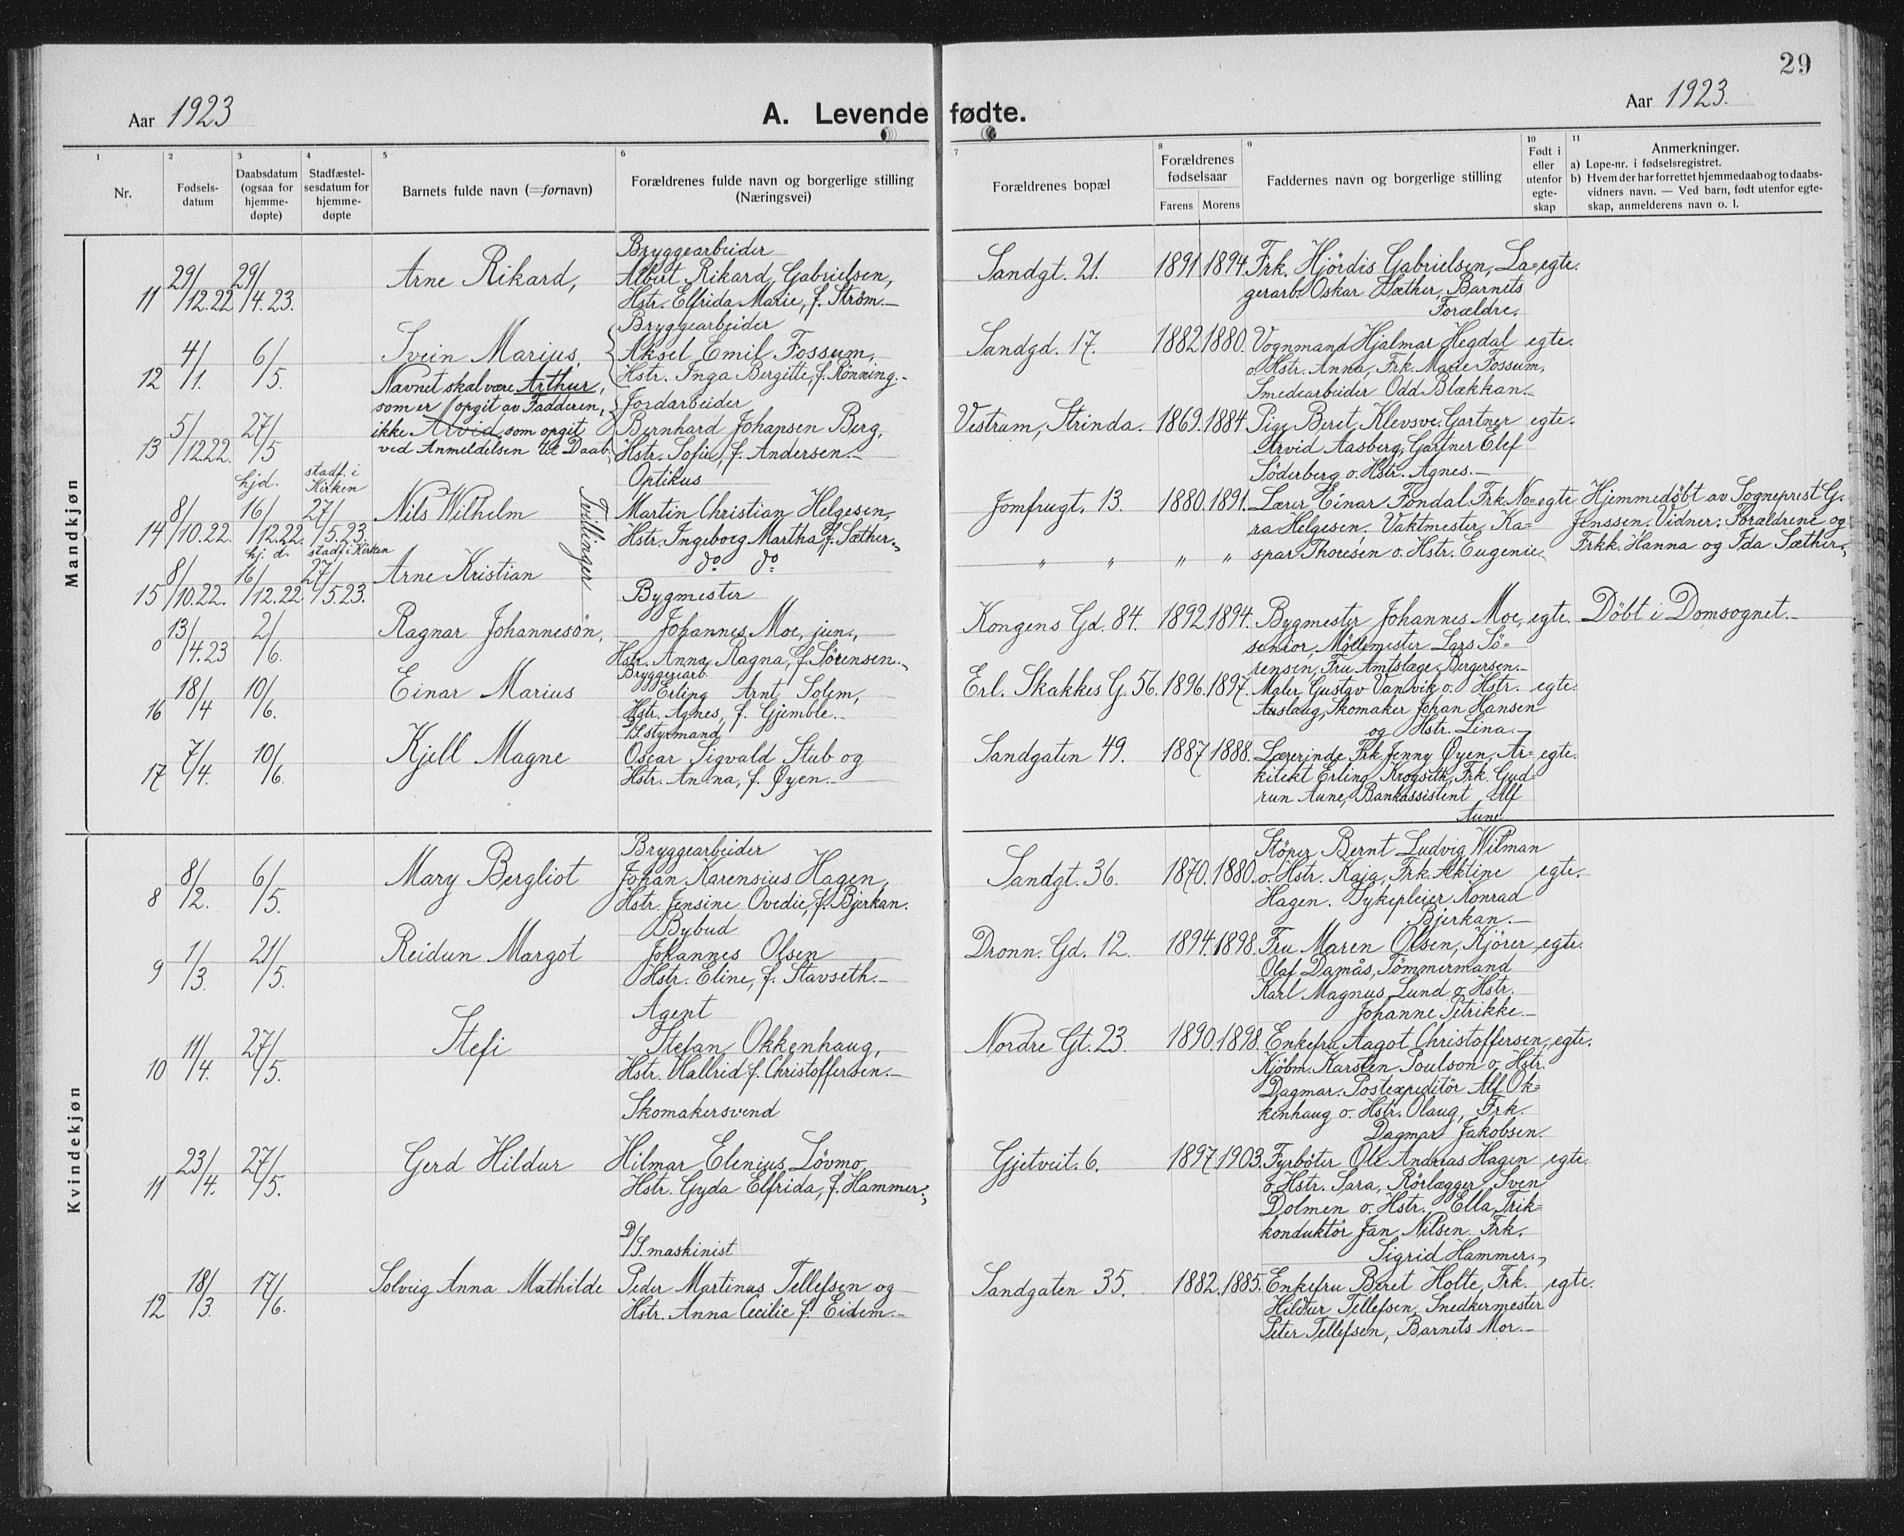 29
Aar 1923
A. Levende fødte.
Aar 1923.
1
Nr.
2
Fødsels-
datum
3
Daabsdatum
(ogsaa for
hjemme-
døpte)
4
Stadfæstel-
sesdatum for
hjemme-
døpte
5
Barnets fulde navn (=fornavn)
6
Forældrenes fulde navn og borgerlige stilling
(Næringsvei)
7
Forældrenes bopæl
8
Forældrenes
fødselsaar
Farens Morens
9
Faddernes navn og borgerlige stilling
10
Født i
eller
utenfor
egte-
skap
11
Anmerkninger.
a) Løpe-nr. i fødselsregistret.
b) Hvem der har forrettet hjemmedaab og to daabs-
vidners navn. — Ved barn, født utenfor egte-
skap, anmelderens navn o. l.
Mandkjøn
11 29/12.22 29/4.23. Arne Rikard,
Bryggearbeider
Albert Rikard Gabrielsen,
Hstr. Elfrida Marie, f. Strøm.-
Sandgt. 21. 1891 1894.
Frk. Hjördis Gabrielsen, La= egte.
gerarb. Oskar Sæther, Barnets
Forældre.
12 4/1. 6/5. Svein Marius,
Bryggearbeider
Aksel Emil Fossum,
Hstr. Inga Bergitte, f. Rønning.-
Sandgd. 17. 1882 1880.
Vognmand Hjalmar Hegdal egte.
o Hstr. Anna, Frk. Marie Fossum,
Smedearbeider Odd Blækkan.-
13 5/12.22. 27/5
Navnet skal være Arthur,
som er opgit av Fadderen,
ikke Arvid, som opgit
ved Anmeldelsen til Daab.
Jordarbeider
Bernhard Johansen Berg,
Hstr. Sofie, f. Andersen.-
Vestrum, Strinda. 1869. 1884.
Pige Beret Klevsve. Gartner egte.
Arvid Aasberg, Gartner Olef
Söderberg o. Hstr. Agnes.-
14 8/10.22. hjd. 16/12.22. stadf. i Kirken 27/5.23. Nils Wilhelm
Tvillinger
Optikus
Martin Christian Helgesen,
Hstr. Ingeborg Martha f. Sæther.-
Jomfrugt. 13. 1880. 1891.
Lærer Einar Fondal. Frk. No= egte
ra Helgesen, Vaktmester Ka=
spar Thoresen o. Hstr. Eugenie.
Hjemmedöbt av Sogneprest G.
Jenssen. Vidner: Forældrene og
Frkk. Hanna og Ida Sæther.-
15 8/10.22. hj. d. 16/12.22 stadf. i Kirken 27/5.23. Arne Kristian
do do
" " " "
0 13/4.23 2/6. Ragnar Johannesön,
Bygmester
Johannes Moe, jun.,
Hstr. Anna Ragna, f. Sørensen.-
Kongens Gd. 84. 1892. 1894.
Bygmester Johannes Moe, egte.
senior, Møllemester Lars Sö=
rensen, Fru Amtslæge Bergersen.-
Döbt i Domsognet.-
16 18/4 10/6. Einar Marius
Bryggearb.
Erling Arnt Solem,
Hstr. Agnes, f. Gjemble.-
Erl. Skakkes G. 56. 1896. 1897.
Maler Gustav Vansvik o. Hstr. egte.
Auslaug, Skomaker Johan Hansen
og Hstr. Lina.-
17 7/4. 10/6. Kjell Magne
D/S. styrmand
Oscar Sigvald Stub og
Hstr. Anna, f. Øyen.-
Sandgaten 49. 1887 1888.
Lærerinde Frk. Jenny Øyen, Ar= egte.
kitekt Erling Krogseth, Frk. Gud=
run Aune, Bankassistent Alf
Aune
Kvindekjøn
8 8/2. 6/5. Mary Bergliot
Bryggearbeider
Johan Karensius Hagen,
Hstr. Jensine Ovedie, f. Bjerkan.
Sandgt. 36. 1870. 1880.
Stöper Bernt Ludvig Wilman
o. Hstr. Kaja, Frk. Aktine egte.-
Hagen. Sykepleier Konrad
Bjerkan.-
9 1/3. 21/5. Reidun Margot
Bybud
Johannes Olsen
Hstr. Eline, f. Stavseth.-
Dronn. Gd. 12. 1894. 1898.
Fru Maren Olsen, Kjörer egte.
Olaf Damås, Tömmermand
Karl Magnus Lund o. Hstr.
Johanne Petrikke.-
10 11/4. 27/5. Stefi
Agent
Stefan Okkenhaug,
Hstr. Hallrid f. Christoffersen.-
Nordre Gt. 23. 1890. 1898.
Enkefru Aagot Christoffersen, egte.
Kjöbm. Karsten Poulson o. Hstr.
Dagmar. Postexpeditör Alf Ok=
kenhaug o. Hstr. Olaug, Frk.
Dagmar Jakobsen.
11 23/4. 27/5. Gerd Hildur
Skomakersvend
Hilmar Elenius Lövmo,
Hstr. Gyda Elfrida, f. Hammer.-
Gjetveit. 6. 1897 1903.
Fyrböter Ole Andreas Hagen egte.
o. Hstr. Sara, Rörlægger Sven
Dolmen o. Hstr. Ella, Trik=
konduktör Jan Nilsen. Frk.
Sigrid Hammer.-
12 18/3 17/6. Solveig Anna Mathilde
D/S. maskinist
Peder Martinus Tellefsen og
Hstr. Anna Cecilie f. Eidem.-
Sandgaten 35. 1882. 1885.
Enkefru Beret Holte, Frk. egte.
Hildur Tellefsen, Snedkermester
Peter Tellefsen, Barnets Mor.-